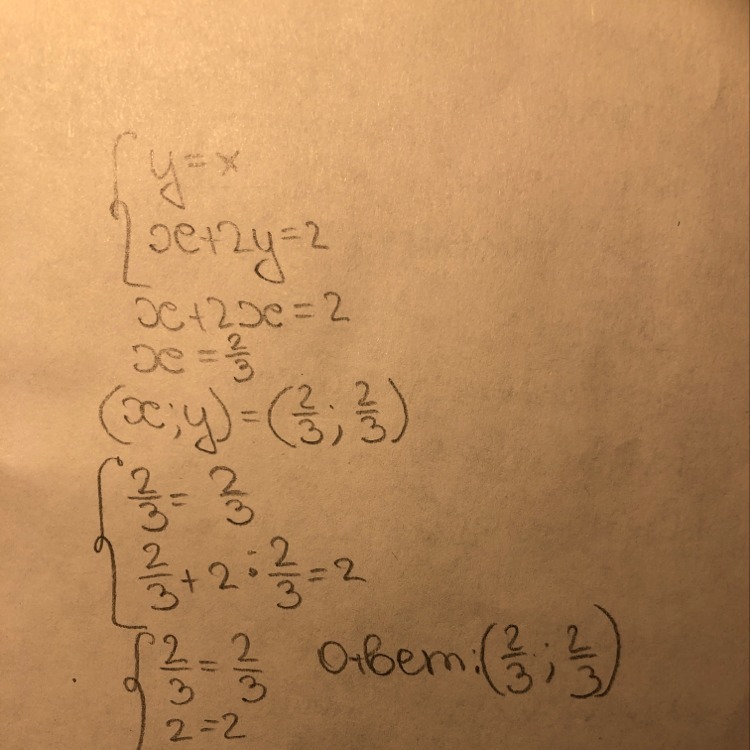 { y = x
x + 2y = 2
x + 2x = 2
x = 2/3
(x; y) = (2/3; 2/3)
{ 2/3 = 2/3
2/3 + 2 : 2/3 = 2
{ 2/3 = 2/3 Ответ: (2/3; 2/3)
2 = 2